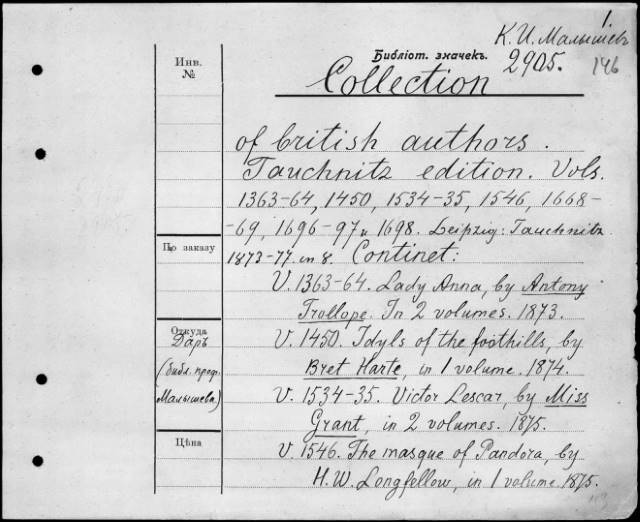 1.
К. И. Малышев
Библіот. значекъ.
2905.
146
Инв.
№
Collection
of british authors.
Tauchnitz edition. Vols.
1363-64, 1450, 1534-35, 1546, 1668-
-69, 1696-97 и 1698. Leipzig: Tauchnitz
1873-77. in 8. Continet:
По заказу
V. 1363-64. Lady Anna, by Antony
Trollope. In 2 volumes. 1873.
Откуда
Даръ
(библ. проф.
Малышева)
V. 1450. Idyls of the foothills, by
Bret Harte, in 1 volume. 1874.
V. 1534-35. Victor Lescar, by Miss
Grant, in 2 volumes. 1875.
Цѣна
V. 1546. The masque of Pandora, by
H. W. Longfellow, in 1 volume. 1875.